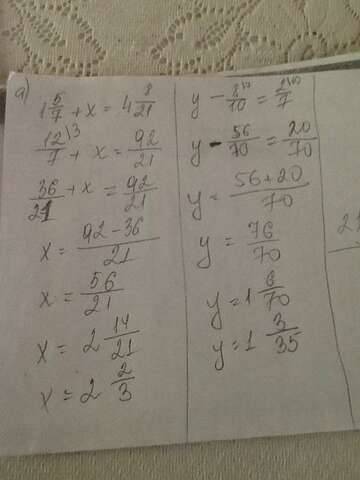 a)
1 5/7 + x = 4 8/21
12/7 \3 + x = 92/21
36/21 + x = 92/21
x = 92 - 36/21
x = 56/21
x = 2 14/21
x = 2 2/3
y - 8/10 \7 = 2/7 \10
y - 56/70 = 20/70
y = 56 + 20/70
y = 76/70
y = 1 6/70
y = 1 3/35